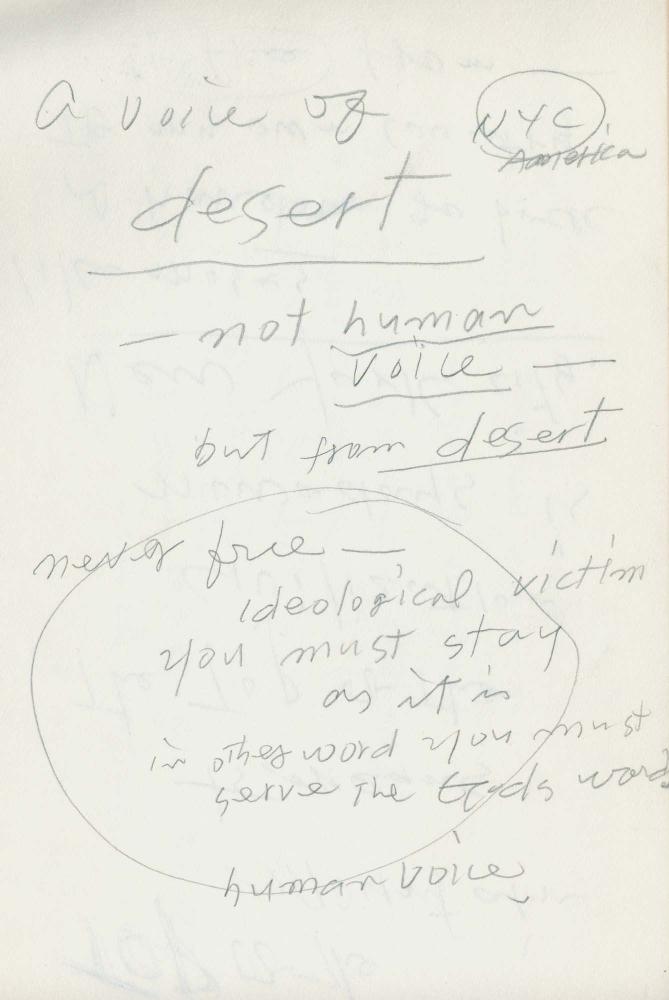 a voice of NYC
America
desert
— not human
voice —
but from desert
never free —
ideological victim
you must stay
as it is
in other word you must
serve the Gods word
human voice